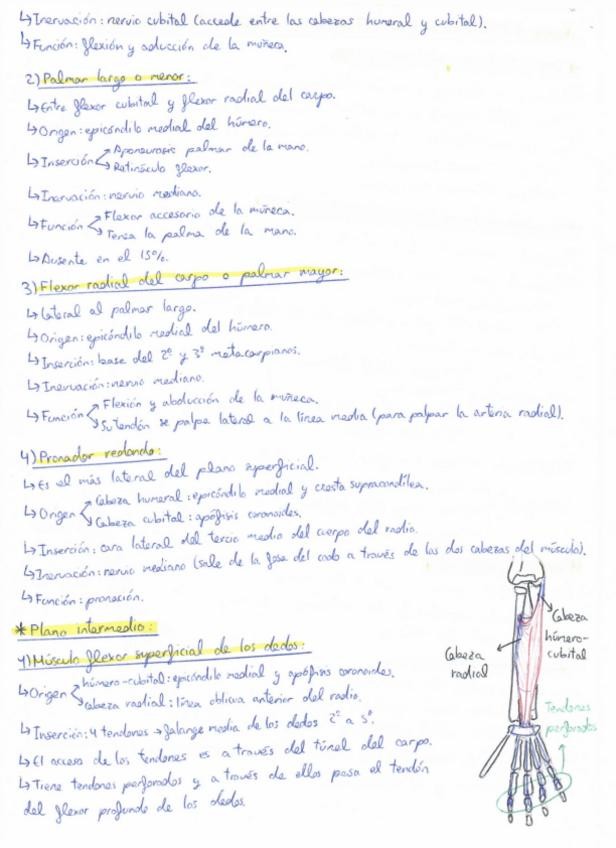 ↳Inervación: nervio cubital (accede entre las cabezas humeral y cubital).
↳Función: flexión y aducción de la muñeca.
2) Palmar largo o menor:
↳Entre flexor cubital y flexor radial del carpo.
↳Origen: epicóndilo medial del húmero.
↳Inserción
Aponeurosis palmar de la mano.
Retináculo flexor.
↳Inervación: nervio mediano.
↳Función
Flexor accesorio de la muñeca.
Tensa la palma de la mano.
↳Ausente en el 15%.
3) Flexor radial del carpo o palmar mayor:
↳Lateral al palmar largo.
↳Origen: epicóndilo medial del húmero.
↳Inserción: base del 2º y 3º metacarpianos.
↳Inervación: nervio mediano.
↳Función
Flexión y abducción de la muñeca.
Su tendón se palpa lateral a la línea media (para palpar la arteria radial).
4) Pronador redondo:
↳Es el más lateral del plano superficial.
↳Origen
Cabeza humeral: epicóndilo medial y cresta supracondílea.
Cabeza cubital: apófisis coronoides.
↳Inserción: cara lateral del tercio medio del cuerpo del radio.
↳Inervación: nervio mediano (sale de la fosa del codo a través de las dos cabezas del músculo).
↳Función: pronación.
* Plano intermedio:
1) Músculo flexor superficial de los dedos:
↳Origen
húmero-cubital: epicóndilo medial y apófisis coronoides.
cabeza radial: línea oblicua anterior del radio.
↳Inserción: 4 tendones → falange media de los dedos 2º a 5º.
↳El acceso de los tendones es a través del túnel del carpo.
↳Tiene tendones perforados y a través de ellos pasa el tendón
del flexor profundo de los dedos.
Cabeza
húmero-
cubital
Cabeza
radial
Tendones
perforados